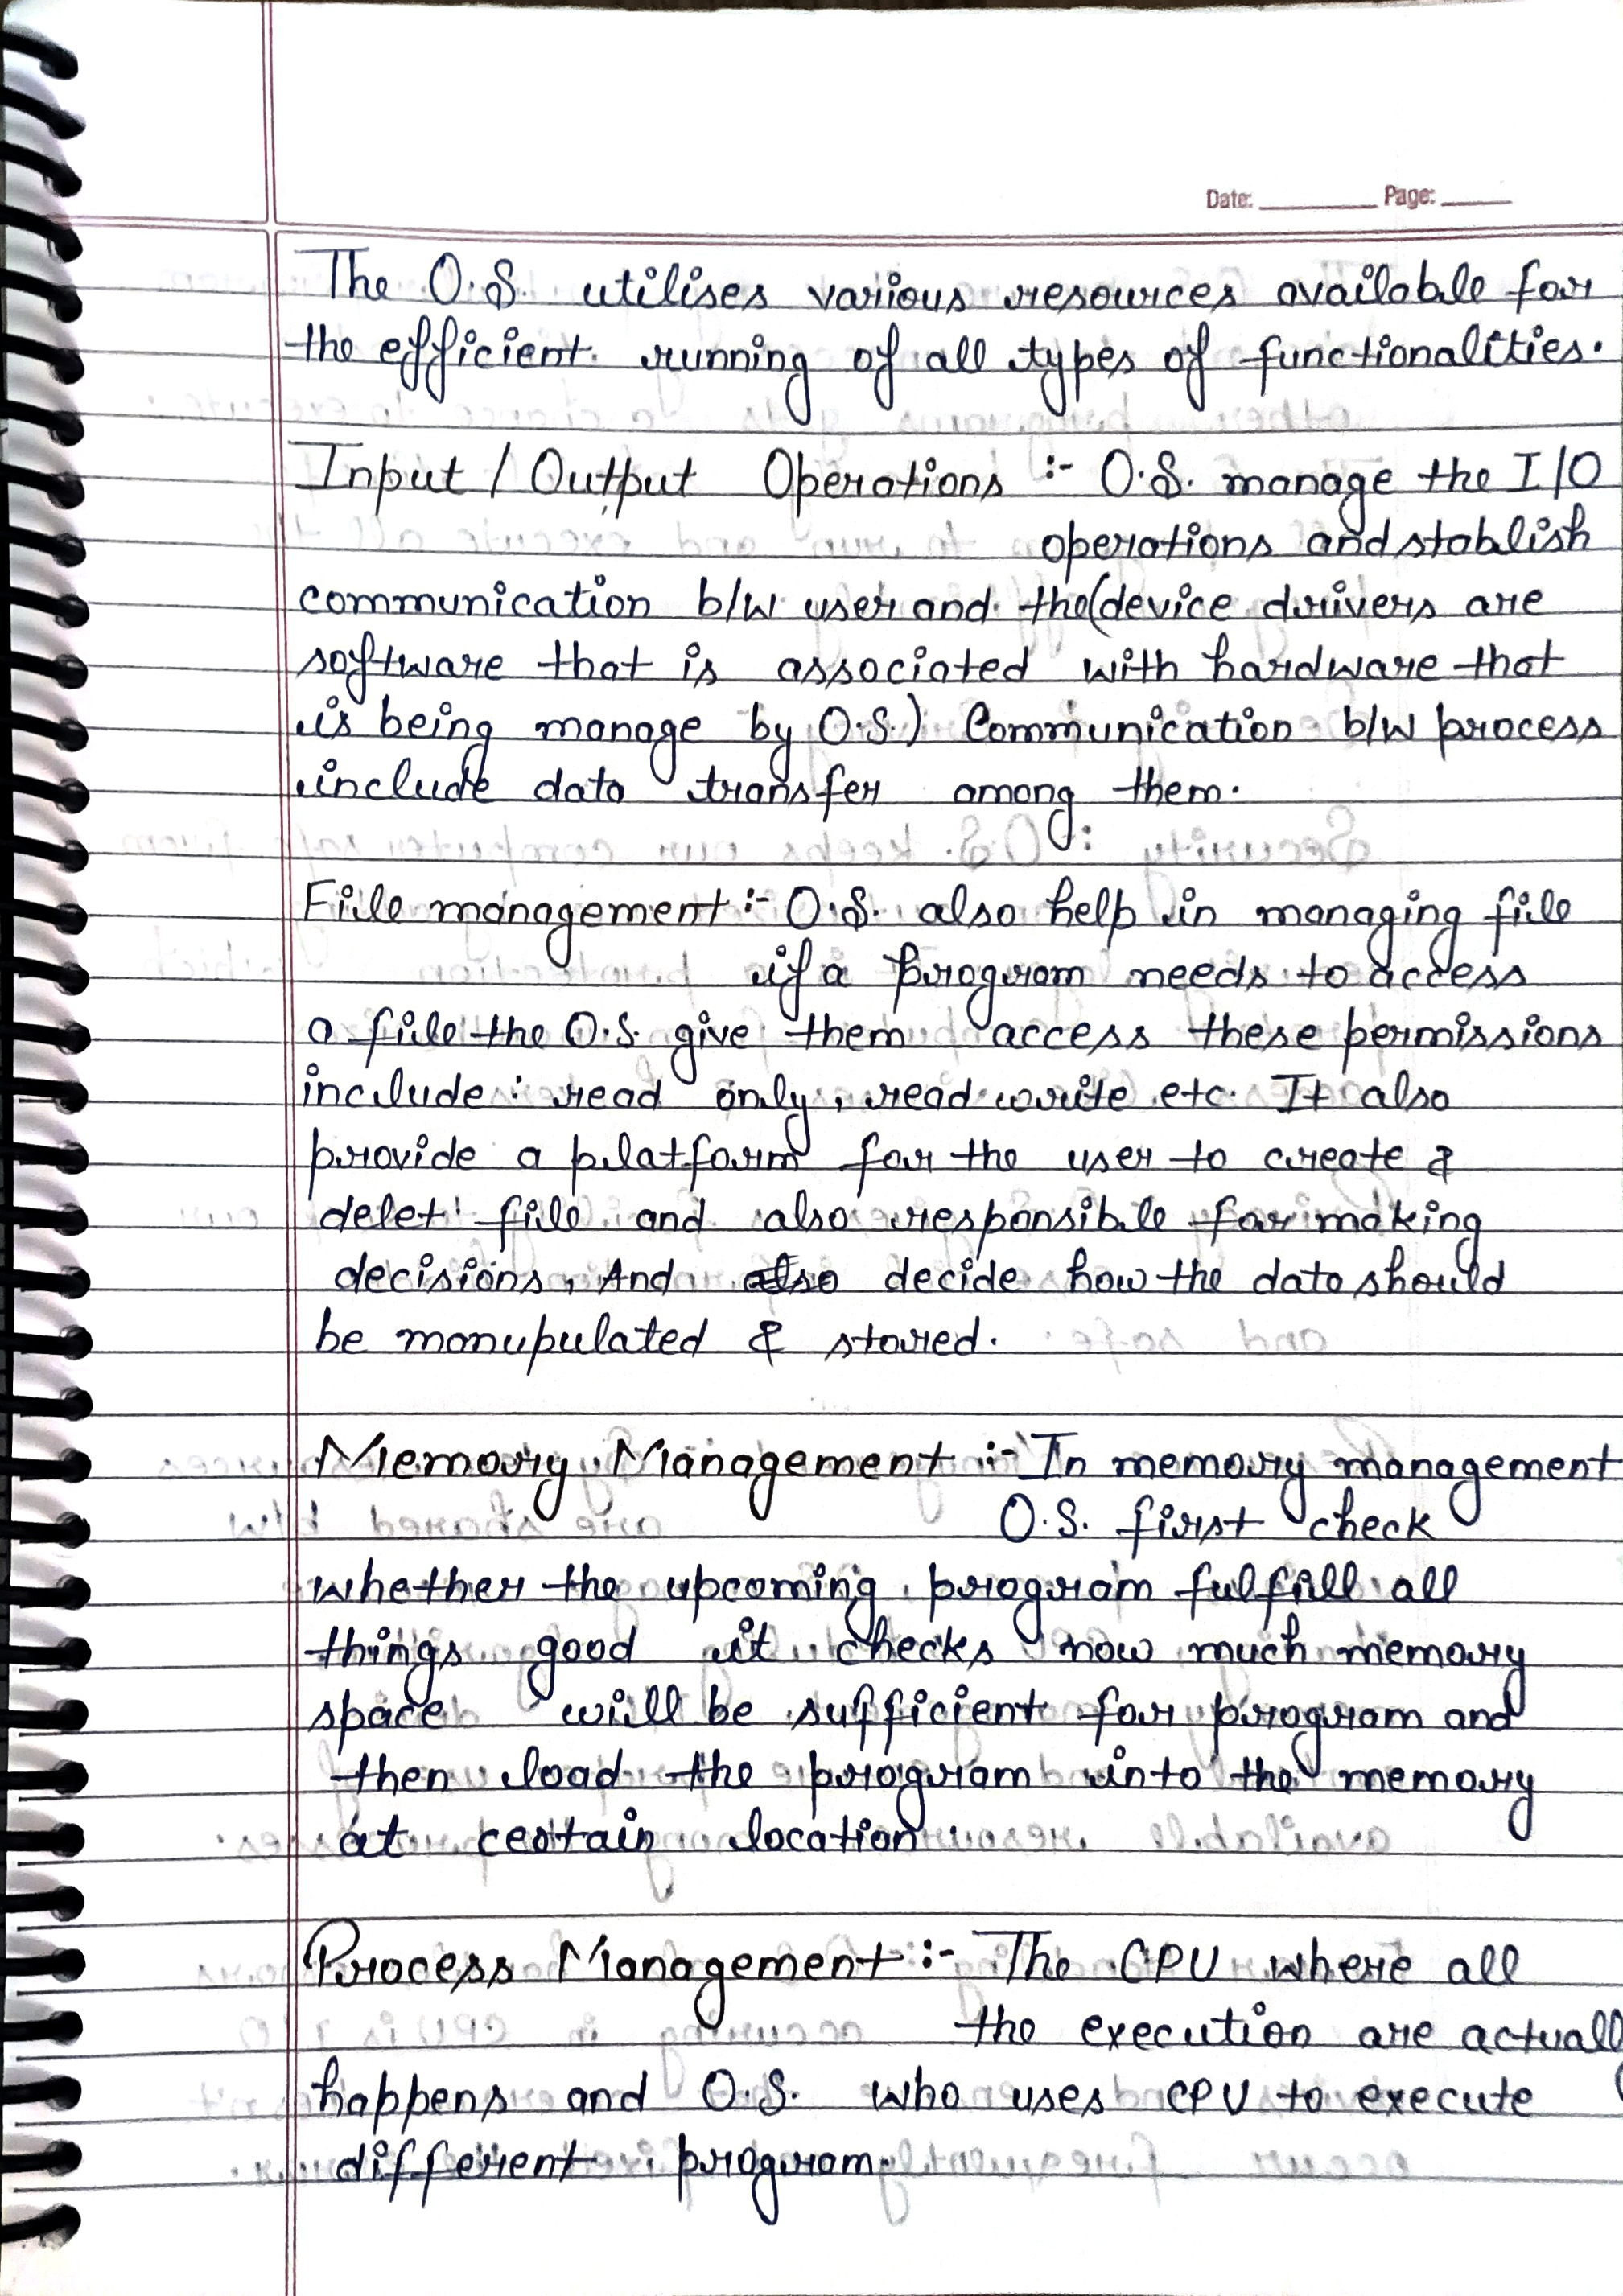 Date: Page:
The O.S. utilises various resources available for
the efficient running of all types of functionalities.
Input / Output Operations :- O.S. manage the I/O
operations and stablish
communication b/w user and the (device drivers are
software that is associated with hardware that
is being manage by O.S.) Communication b/w process
include data transfer among them.
File management :- O.S. also help in managing file
if a program needs to access
a file the O.S. give them access these permissions
include : read only, read write etc. It also
provide a platform for the user to create &
delet file and also responsible for making
decisions, And also decide how the data should
be manupulated & stored.
Memory Management :- In memory management
O.S. first check
whether the upcoming program fulfill all
things good it checks how much memory
space will be sufficient for program and
then load the program into the memory
at certain location
Process Management :- The CPU where all
the execution are actuall
happens and O.S. who uses CPU to execute
different program.